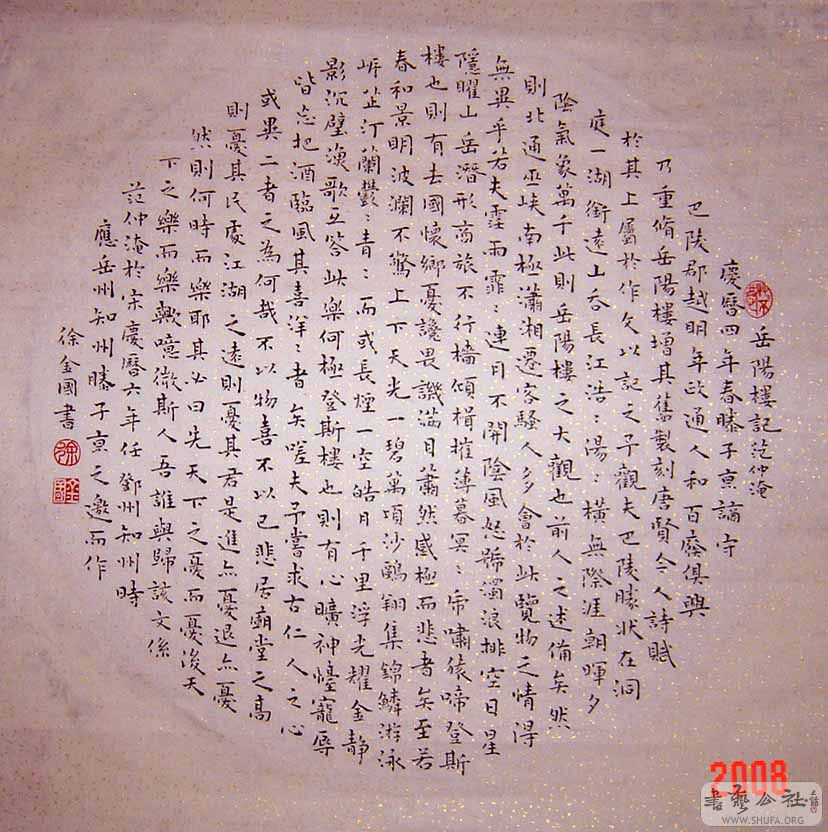 岳陽樓記 范仲淹
慶曆四年春滕子京謫守
巴陵郡越明年政通人和百廢俱興
乃重脩岳陽樓增其舊製刻唐賢今人詩賦
於其上屬於作文以記之予觀夫巴陵勝狀在洞
庭一湖銜遠山吞長江浩〻湯〻橫無際涯朝暉夕
陰氣象萬千此則岳陽樓之大觀也前人之述備矣然
則北通巫峽南極瀟湘遷客騷人多會於此覽物之情得
無異乎若夫霪雨霏〻連月不開陰風怒號濁浪排空日星
隱曜山岳潛形商旅不行檣傾楫摧薄暮冥〻虎嘯猿啼登斯
樓也則有去國懷鄉憂讒畏譏滿目蕭然感極而悲者矣至若
春和景明波瀾不驚上下天光一碧萬頃沙鷗翔集錦鱗游泳
岸芷汀蘭鬱〻青〻而或長煙一空皓月千里浮光耀金靜
影沉璧漁歌互答此樂何極登斯樓也則有心曠神怡寵辱
皆忘把酒臨風其喜洋〻者矣嗟夫予嘗求古仁人之心
或異二者之為何哉不以物喜不以己悲居廟堂之高
則憂其民處江湖之遠則憂其君是進亦憂退亦憂
然則何時而樂耶其必曰先天下之憂而憂後天
下之樂而樂歟噫微斯人吾誰與歸該文係
范仲淹於宋慶曆六年任鄧州知州時
應岳州知州滕子京之邀而作
徐金國書
2008
書藝公社
WWW.SHUFA.ORG